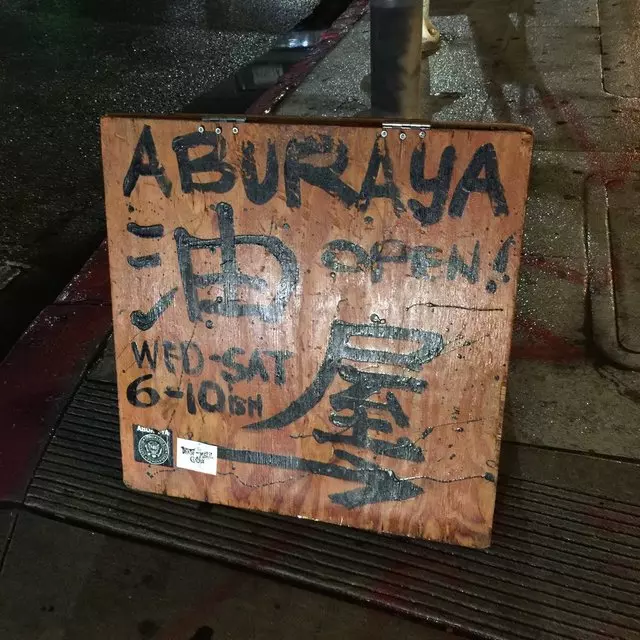 ABURAYA
油
OPEN!
屋
WED-SAT
6-10ISH